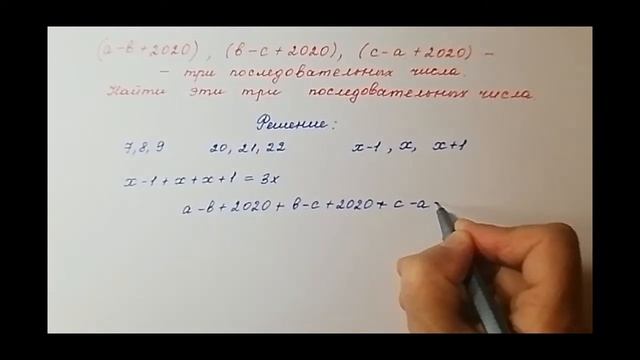 (a-в+2020), (в-c+2020), (c-a+2020) -
- три последовательных числа.
Найти эти три последовательных числа.
Решение:
7,8,9 20, 21, 22 x-1, x, x+1
x-1+x+x+1=3x
a-в+2020+в-c+2020+c-a